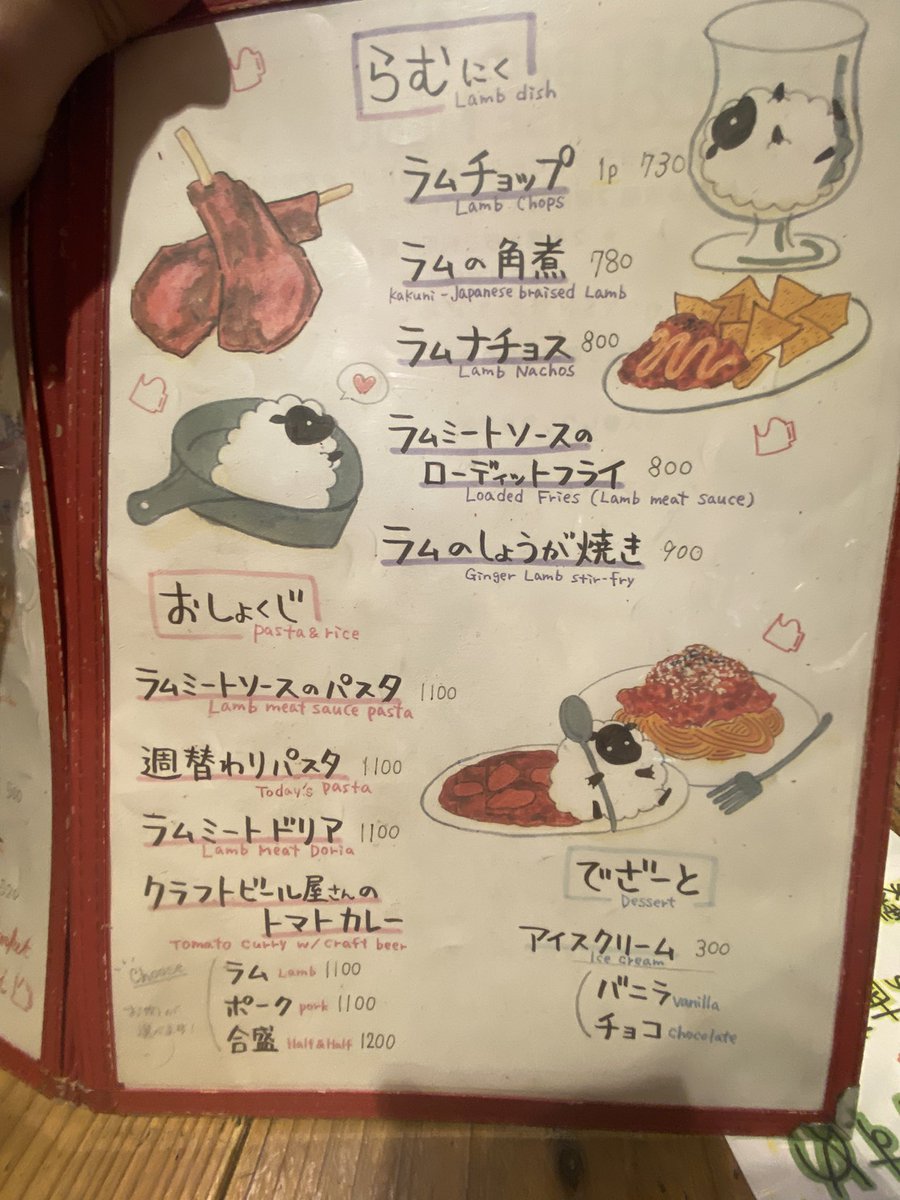 らむにく
Lamb dish
ラムチョップ 1p 730
Lamb Chops
ラムの角煮 780
kakuni-Japanese braised Lamb
ラムナチョス 800
Lamb Nachos
ラムミートソースの
ローディットフライ 800
Loaded Fries (Lamb meat sauce)
ラムのしょうが焼き 900
Ginger Lamb stir-fry
おしょくじ
pasta & rice
ラムミートソースのパスタ 1100
Lamb meat sauce pasta
週替わりパスタ 1100
Today's pasta
ラムミートドリア 1100
Lamb Meat Doria
クラフトビール屋さんの
トマトカレー
Tomato curry w/craft beer
Choose
お肉が
選べます!
ラム Lamb 1100
ポーク pork 1100
合盛 Half&Half 1200
でざーと
Dessert
アイスクリーム 300
Ice cream
バニラ vanilla
チョコ chocolate